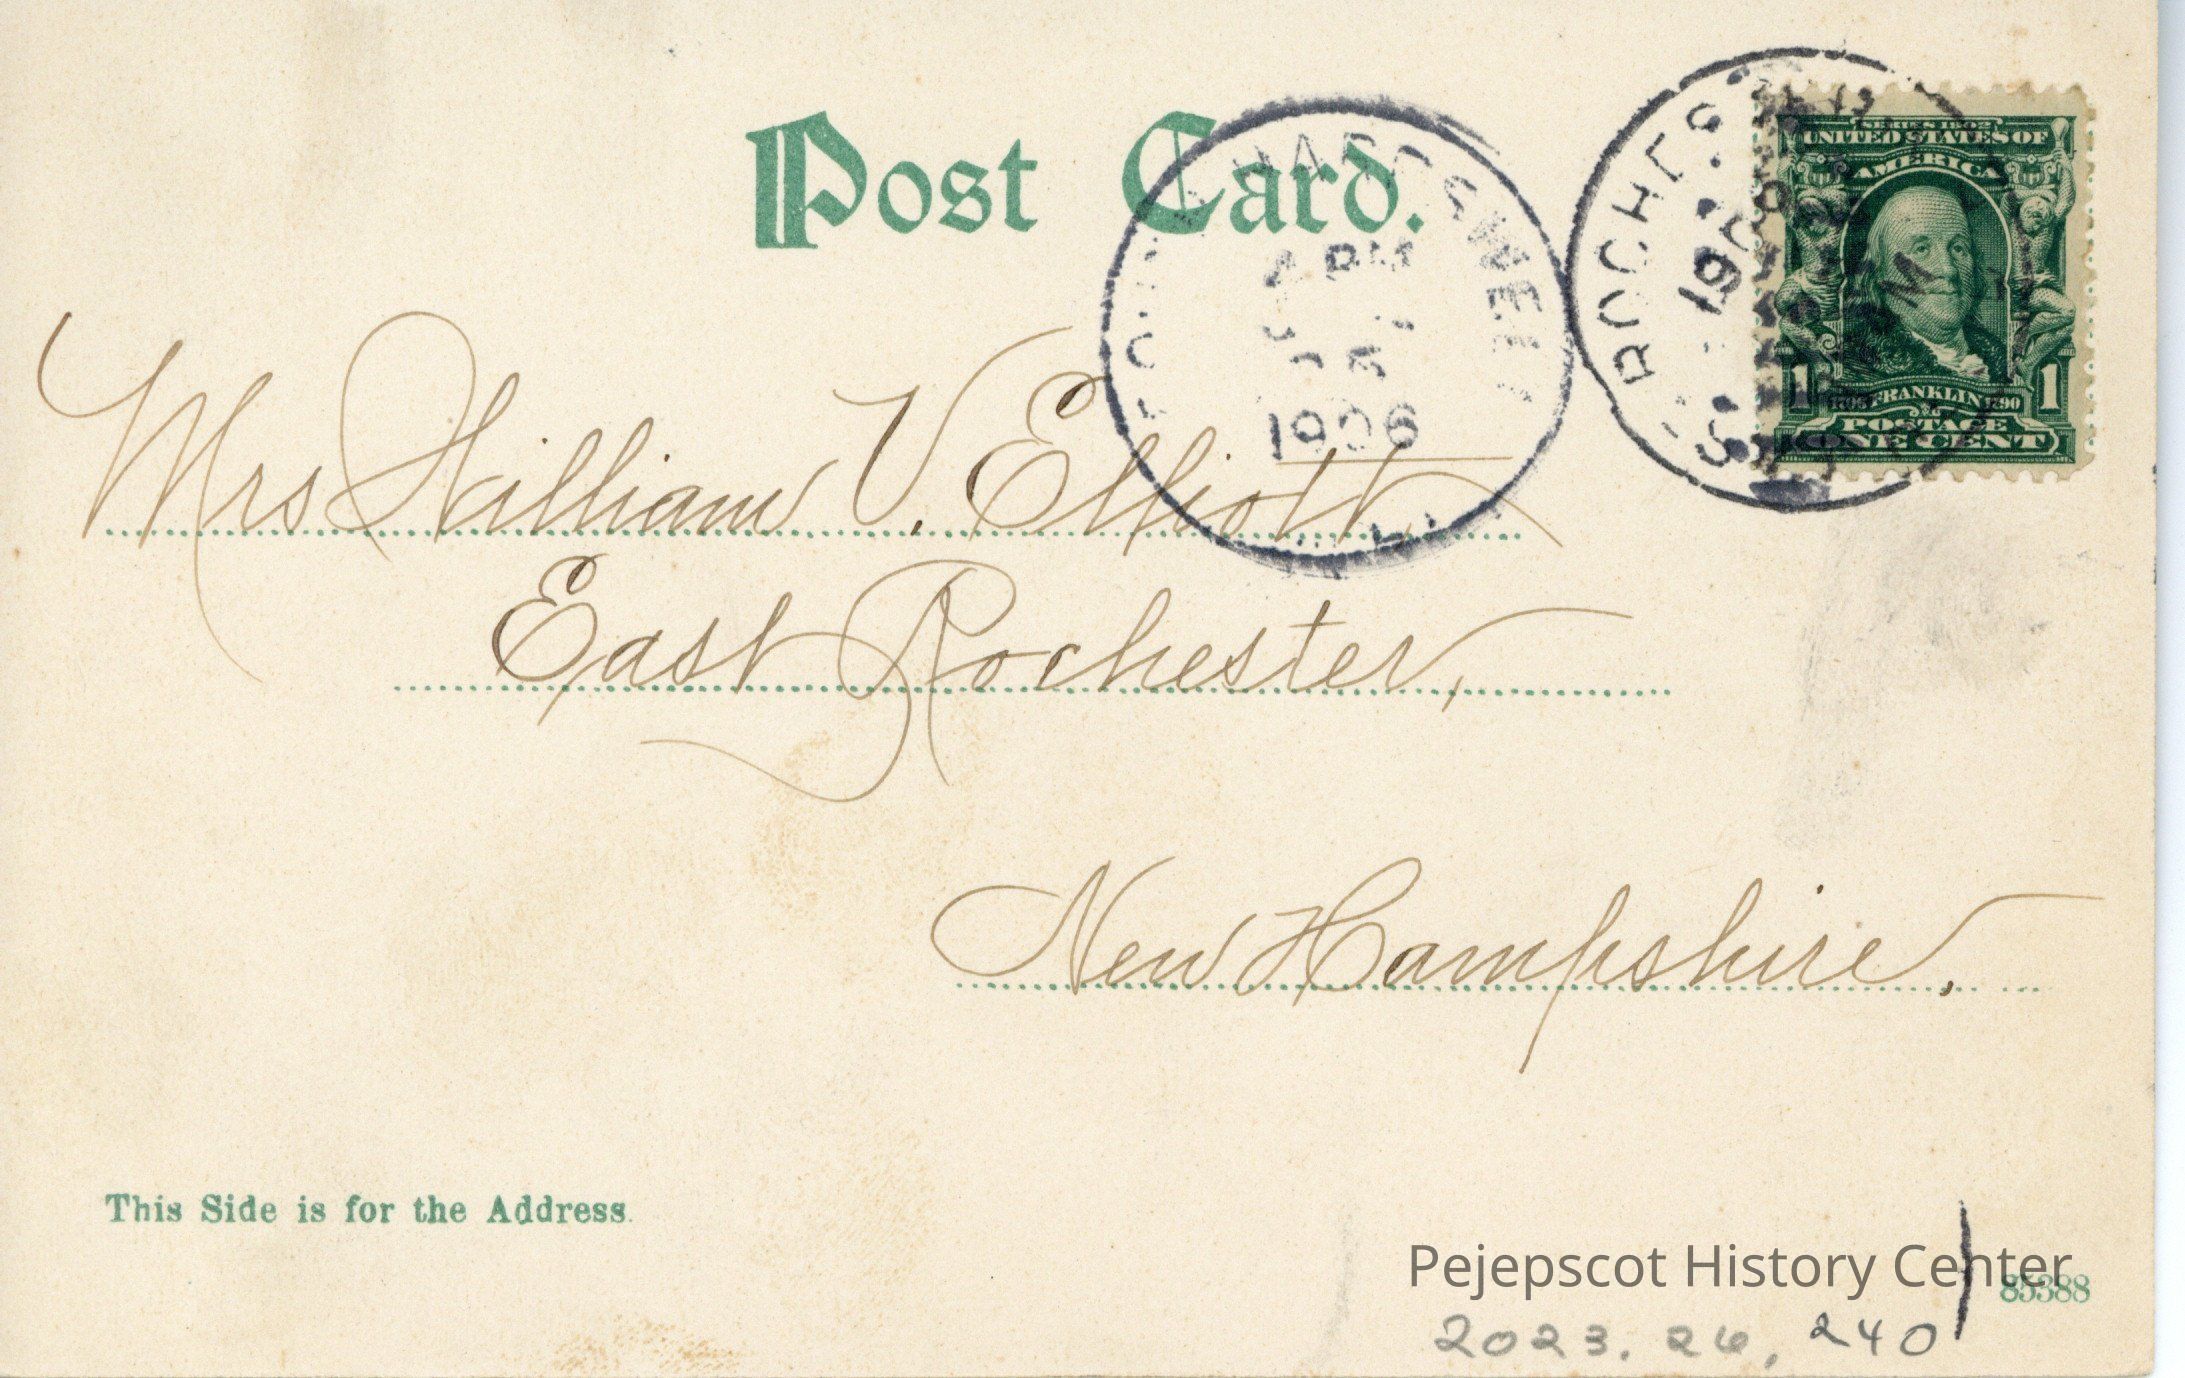 Post Card.
HARPSWELL
APR
1906
ROCHES
SERIES 1902
UNITED STATES OF
AMERICA
1 FRANKLIN 1790 1
POSTAGE
ONE CENT
Mrs William V. Elliott,
East Rochester,
New Hampshire,
This Side is for the Address.
Pejepscot History Center
85388
2023.26.240